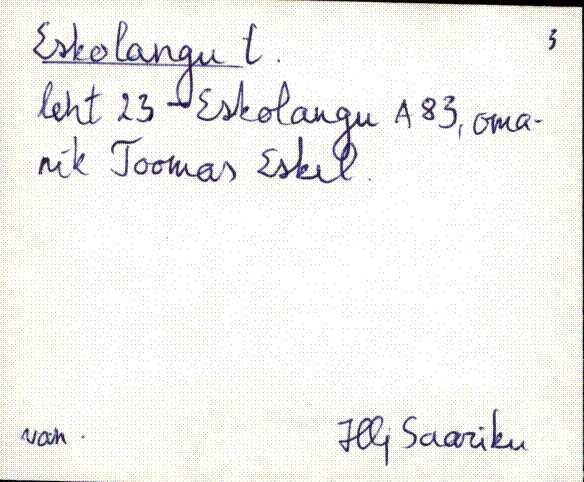 Eskolangu t. 3
leht 23 - Eskolangu A 83, oma-
nik Toomas Eskel.
van. Hlj Saariku